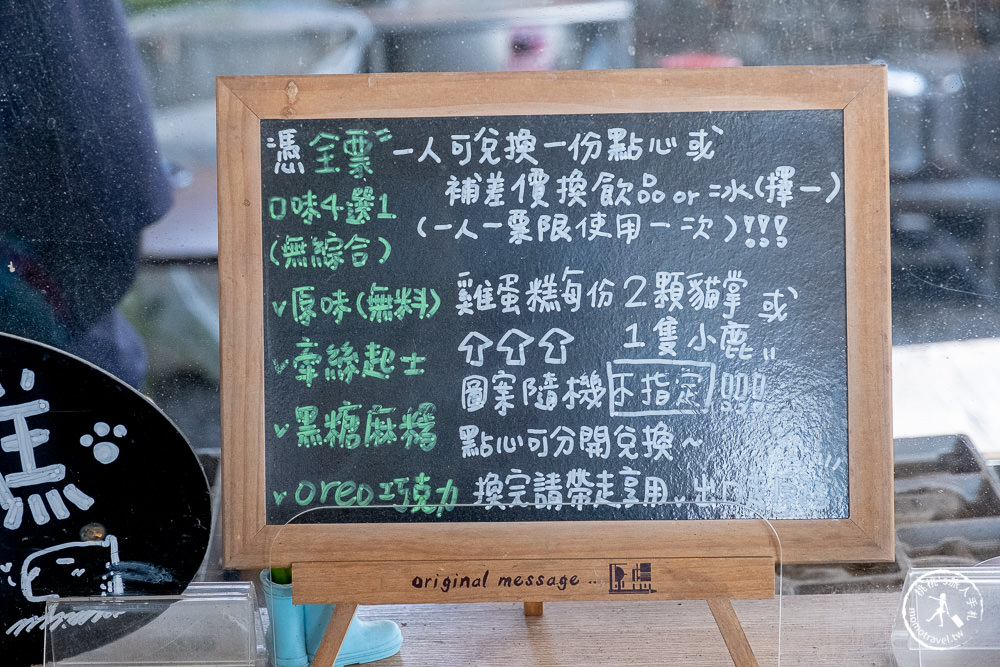 憑全票 一人可兌換一份點心或
補差價換飲品 or 二冰(擇一)
(一人一票限使用一次)!!!
口味4選1
(無綜合)
v 原味(無料)
v 牽絲起士
v 黑糖麻糬
v oreo巧克力
雞蛋糕每份2顆貓掌 或
1隻小鹿
圖案隨機 不指定 !!!!
點心可分開兌換~
換完請帶走享用
original message ..
momotravel.tw